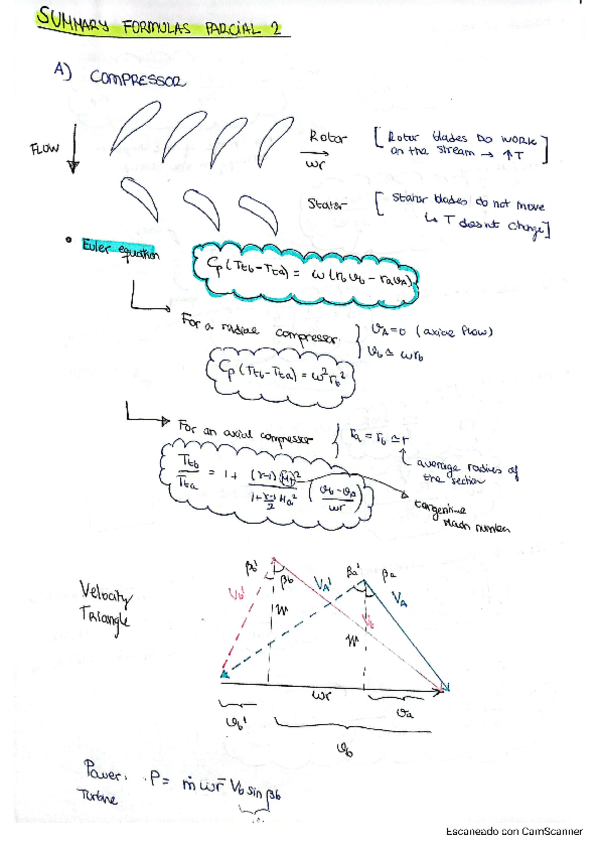 SUMMARY FORMULAS PARCIAL 2
A) COMPRESSOR
FLOW
Rotor
wr
[Rotor blades DO WORK on the stream → ↑T]
Stator
[Stator blades do not move ↳ T doesn't change]
• Euler equation
Cp (Ttb - Tta) = ω (rb vb - ra va)
For a radial compressor
va = 0 (axial flow)
vb ≃ ωrb
Cp (Ttb - Tta) = ω² rb²
For an axial compressor
ra = rb ≃ r
average radius of the section
Ttb/Tta = 1 + (γ-1)(Mr)² / (1 + (γ-1)/2 Ma²) ((vb - va)/wr)
tangential Mach number
Velocity Triangle
βb' βb VA' βa' βa
Vb' W VA
Vb W
wr
vb' va
vb
Power. P = ṁ w r̄ Vb sin βb
Turbine
Escaneado con CamScanner